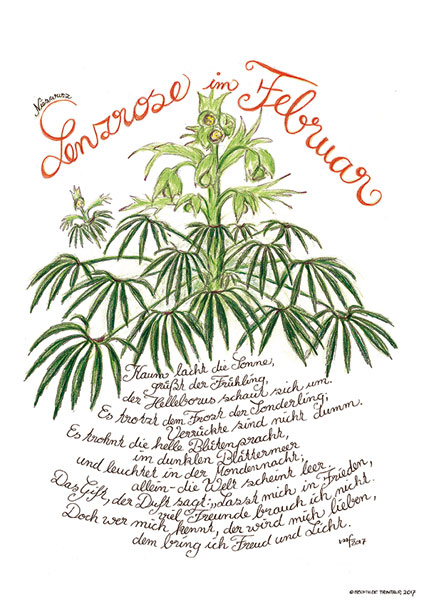 Nieswurz
Lenzrose im Februar
Kaum lacht die Sonne,
grüßt der Frühling,
der Helleborus schaut sich um.
Es trotzt dem Frost der Sonderling;
Verrückte sind nicht dumm.
Es thront die helle Blütenpracht,
im dunklen Blättermeer
und leuchtet in der Mondennacht;
allein - die Welt scheint leer.
Das Gift, der Duft sagt: „Lasst mich in Frieden,
viel Freunde brauch ich nicht.
Doch wer mich kennt, der wird mich lieben,
dem bring ich Freud und Licht.
2017